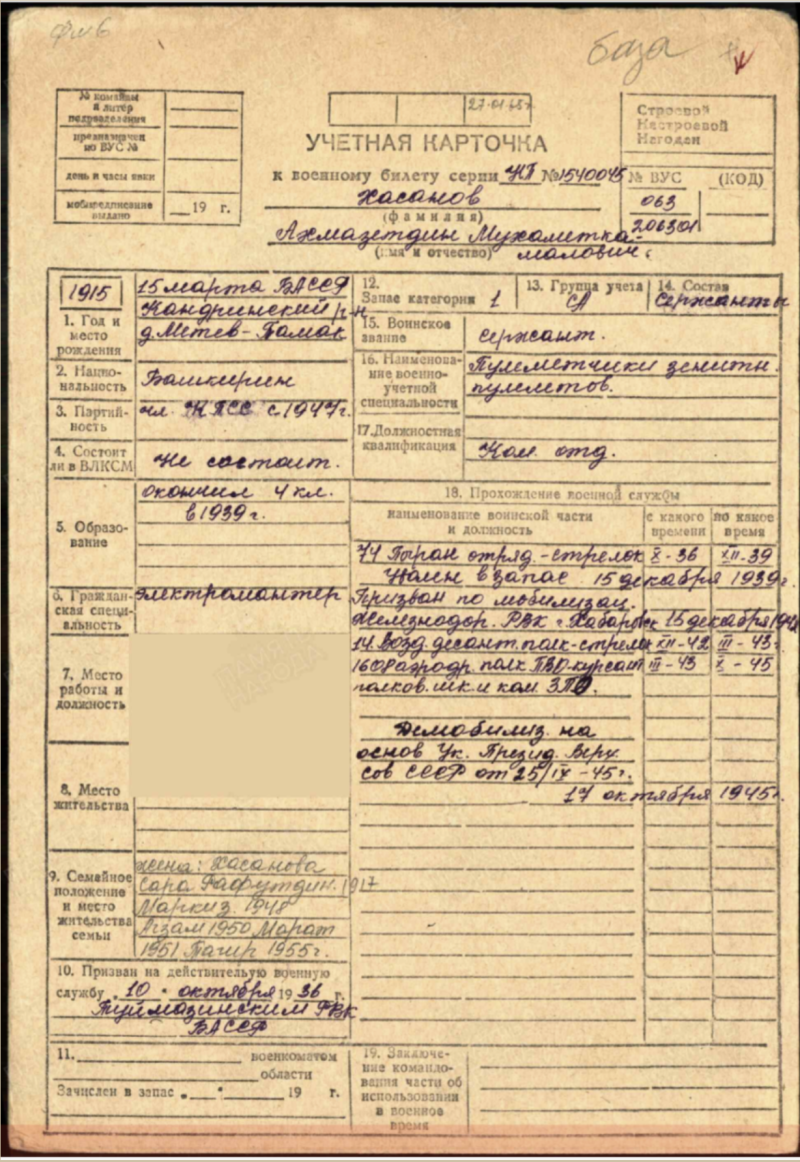 база
№ команды
и литер
подразделения
предназначен
по ВУС №
день и часы явки
мобпредписание
выдано
19 г.
27.01.65г.
УЧЕТНАЯ КАРТОЧКА
к военному билету серии НП №1540045
Хасанов
(фамилия)
Ахмазетдин Мухаметка-
(имя и отчество) малович.
Строевой
Нестроевой
Негоден
№ ВУС (КОД)
063
206301
1915
1. Год и
место
рождения
15 марта БАССР
Кандринский р-н
д.Метев-Тамак
2. Нацио-
нальность
Башкирин
3. Партий-
ность
чл. КПСС с 1947г.
4. Состоит
ли в ВЛКСМ
Не состоит.
5. Образо-
вание
окончил 4 кл.
в 1939г.
6. Граждан-
ская специ-
альность
электромантер
7. Место
работы и
должность
8. Место
жительства
9. Семейное
положение
и место
жительства
семьи
жена: Хасанова
Сара Гафутдин. 1917
Маркиз. 1948
Агзам 1950 Марат
1951 Тагир 1955г.
10. Призван на действительную военную
службу 10 октября 1936 г.
Туймазинским РВК
БАССР
11. военкоматом
области
Зачислен в запас „ “ 19 г.
12.
Запас категории 1
13. Группа учета
СА
14. Состав
Сержанты
15. Воинское
звание
сержант.
16. Наименова-
ние военно-
учетной
специальности
Пулеметчики зенитн.
пулеметов.
17. Должностная
квалификация
Ком. отд.
18. Прохождение военной службы
наименование воинской части
и должность
с какого
времени
по какое
время
74 Погран отряд.-стрелок X-36 XII-39
Уволен в запас 15 декабря 1939г.
Призван по мобилизац.
Железнодор. РВК г. Хабаровск 15 декабря
14. Возд. десант. полк-стрелок XII-42 III-43г.
аэродр. полк ПВО-курсант III-43 X-45
полков. шк. и ком. ЗПО.
Демобилиз. на
основ Ук. Презид. Верх.
сов СССР от 25/IX-45г.
17 октября 1945г.
19. Заключе-
ние командо-
вания части об
использовании
в военное
время